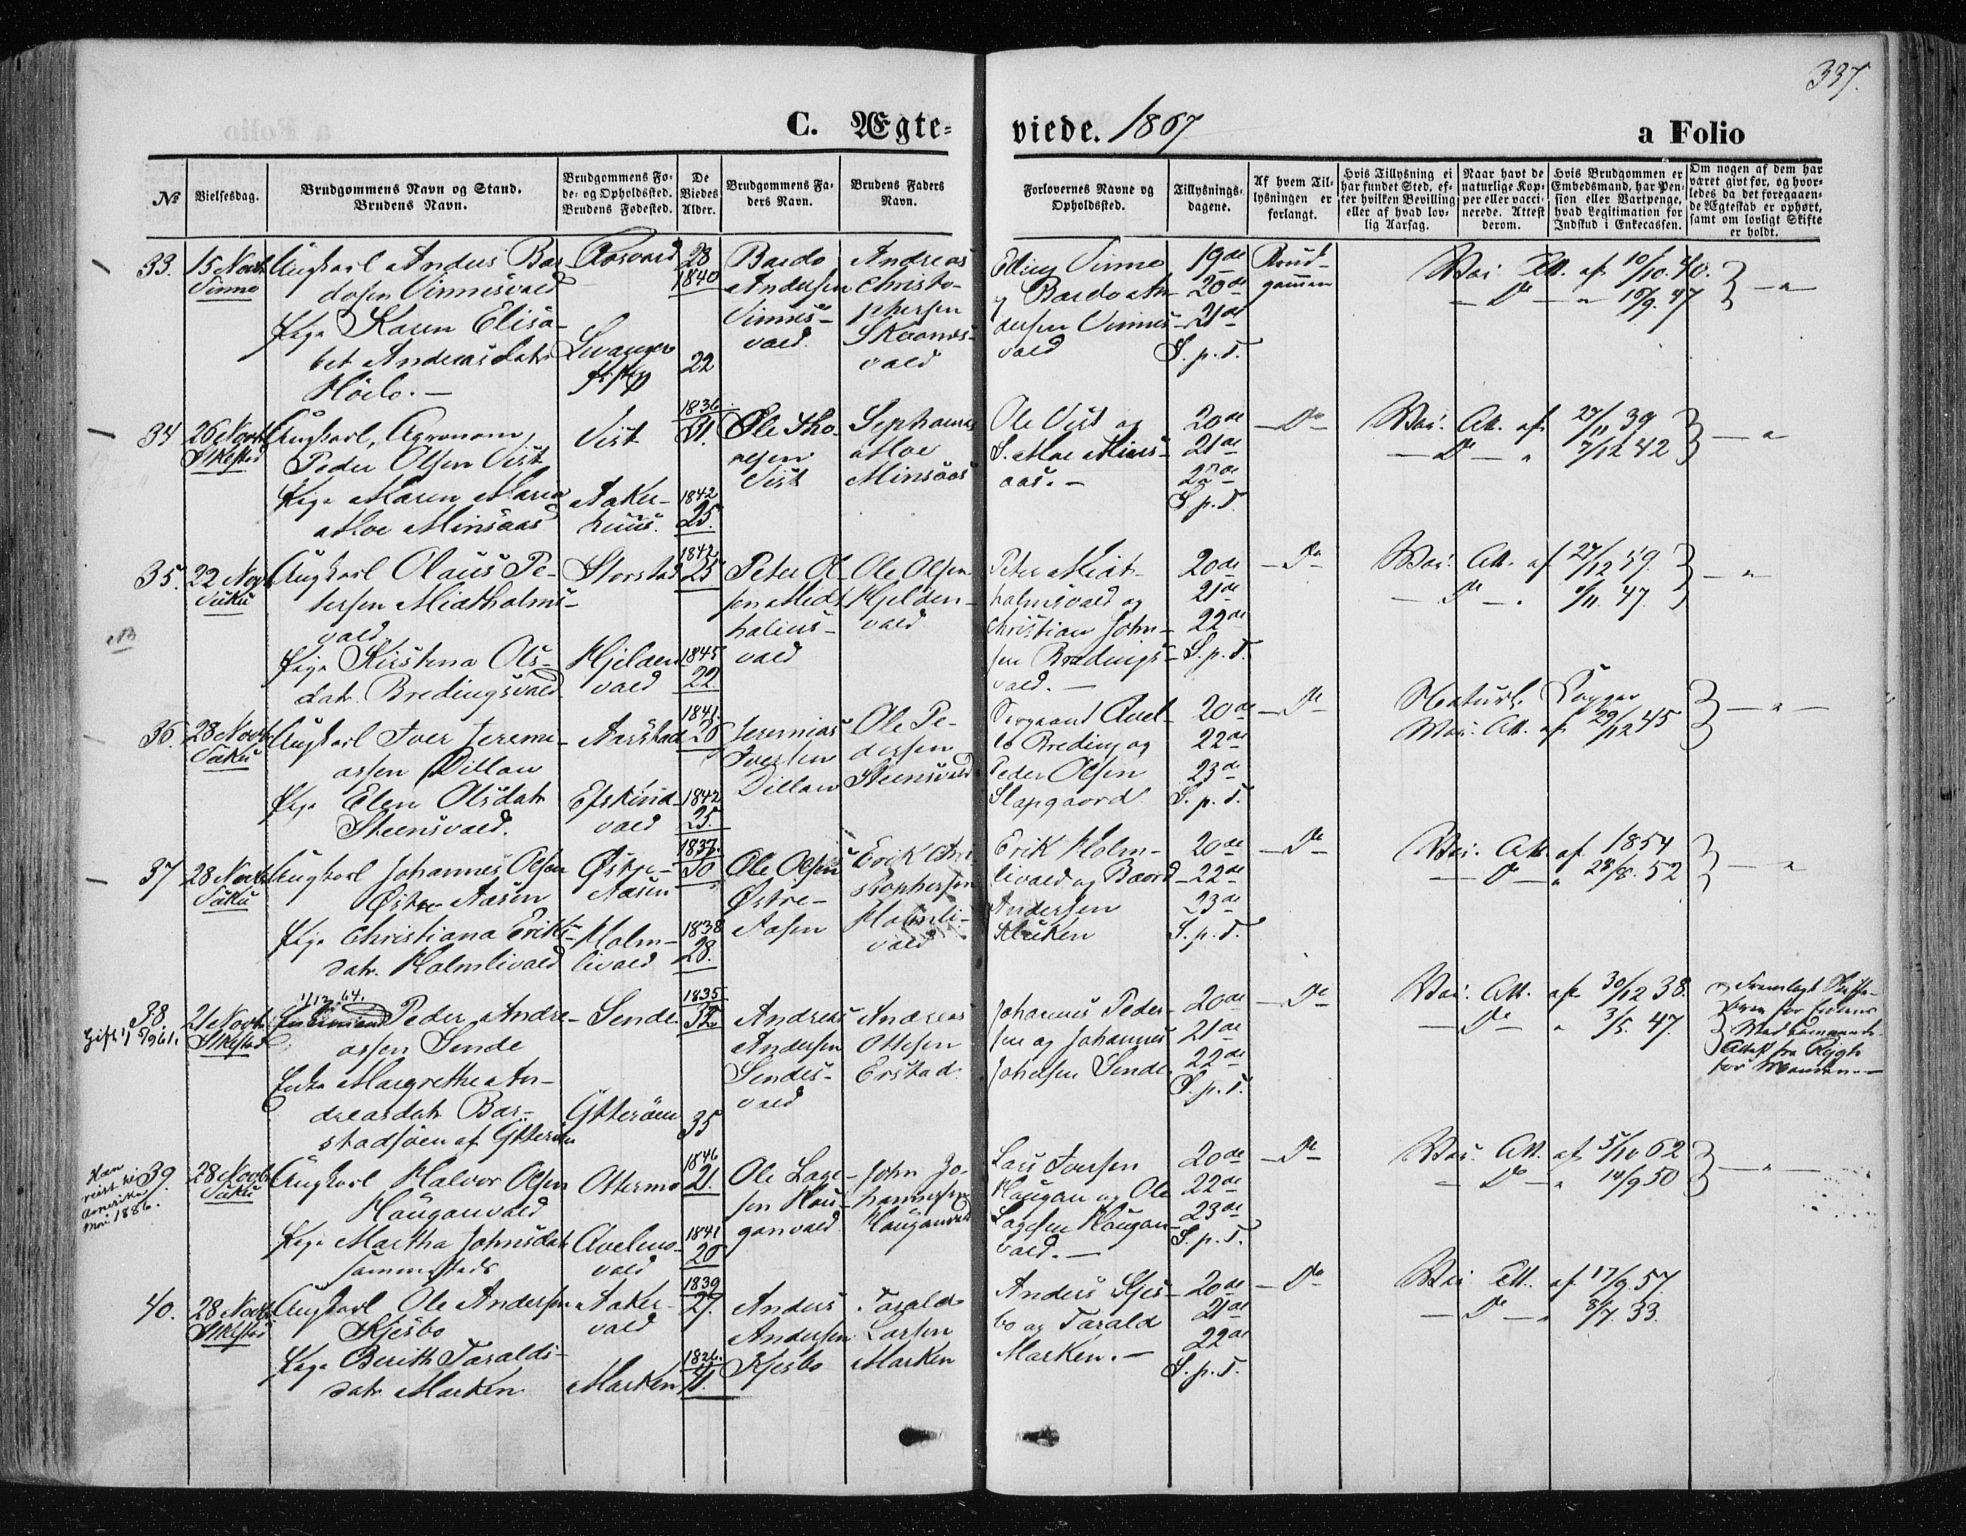 337.
C. Ægte-
viede. 1867
a Folio
№
Vielsesdag.
Brudgommens Navn og Stand.
Brudens Navn.
Brudgommens Fø-
de- og Opholdssted.
Brudens Fødested.
De
Viedes
Alder.
Brudgommens Fa-
ders Navn.
Brudens Faders
Navn.
Forlovernes Navne og
Opholdssted.
Tillysnings-
dagene.
Af hvem Til-
lysningen er
forlangt.
Hvis Tillysning ei
har fundet Sted, ef-
ter hvilken Bevilling
eller af hvad lov-
lig Aarsag.
Naar havt de
naturlige Kop-
per eller vacci-
nerede. Attest
derom.
Hvis Brudgommen er
Embedsmand, har Pen-
sion eller Vartpenge,
hvad Legitimation for
Indskud i Enkecassen.
Om nogen af dem har
været gift før, og hvor-
ledes da det foregaaen-
de Ægteskab er ophørt,
samt om lovligt Skifte
er holdt.
33. 15 Novb.
Ungkarl Anders Bar-
dosen Vinnesvald
Pige Karen Elisa-
bet Andreasdatr
28
1840
22
Bardo
Andersen
Vinnes-
vald.
Andreas
Christo-
phersen
vald
Elling Vinne
og Bardo An-
dersen Vinnes-
vald
19de
20de
21de
S. p. T.
Brud-
gommen
Vac. Att. af 10/10. 40.
— Do — " 10/9. 47 } — " —
34 26 Novb.
Stiklestad
Ungkarl, Agronom,
Peder Olsen Vist
Pige Maren Maria
Moe Minsaas
Vist
Aaker-
huus.
1836
31.
1842
25.
Ole Tho-
resen
Vist
Sephanias
Moe
Minsaas
Ole Vist og
S. Moe Mins-
aas. —
20de
21de
22de
S. p. T.
— Do —
Vac. Att. af 27/11 39
— Do — " 7/12 42 } — "
35. 22 Novb.
Ungkarl Olaus Pe-
tersen Midtholms-
vald
Pige Kirstina Ols-
datr. Bredingsvald
Storstad
Hjelden
vald
1842
25
1845
22
Peter Ol-
sen Midt-
holms-
vald
Ole Olsen
Hjelden-
vald
Peter Midt-
holmsvald og
Christian John-
sen Bredings-
vald. —
20de
21de
22de
S. p. T.
— Do —
Vac. Att. af 27/12 59.
— Do — . /11. 47. } — " —
36. 28 Novb.
Ungkarl Iver Jeremi-
assen Dillan
Pige Elen Olsdatr
Steensvald.
Aarstad
vald
1841.
26
1842
25.
Jeremias
Iversen
Dillan
Ole Pe-
dersen
Steensvald
Sergeant Avel-
Breding og
Peder Olsen
Slapgaard.
20de
22de
23de
S. p. T.
— Do —
Naturl. Kopper
Vac. Att. af 29/12 45 } — " —
37 28 Novb.
Ungkarl Johannes Olsen
Østre Aasen
Pige Christiana Eriks-
datr. Holmlivald
Østre
Aasen
Holm-
livald
1837.
30
1838
28.
Ole Olsen
Østre-
Aasen
Erik
Holmli-
vald
Erik Holm-
livald og Baard
Andersen
20de
22de
23de
S. p. T.
— Do —
Vac. Att. af 1854
— Do — " 28/8. 52 } — "
38
21 Novb.
Stiklestad
Gift 1/ 5/9 61.
1/12. 64.
Enkemand Peder Andre-
assen Sende
Enke Margrethe An-
dreasdatr Bar-
stadsöen af Ytterøen
Sende
Ytterøen
1835
32
35
Andreas
Andersen
Sendes-
vald
Andreas
Ottesen
Erstad.
Johannes Peder-
sen og Johannes
Johnsen Sende
20de
21de
22de
S. p. T.
— Do —
Vac. Att. af 30/12 38.
— Do — " 3/5. 47.
Fremlagt Skifte-
brev for Enken
for Manden. —
39. 28 Novb.
Han
reist til
Amerika
Mai 1886.
Ungkarl Halvor Olsen
Hauganvald
Pige Martha Johnsdatr
sammesteds
Ottermo
Avelms-
vald
1846
21.
1841
26
Ole Lage-
sen Hau-
ganvald
John Jo-
hannesen
Hauganvald
Lars Iversen
Haugan og Ole
Lagesen Haugan-
vald. —
20de
22de
23de
S. p. T.
— Do —
Vac. Att. af 5/10 62
— Do — " 14/9 50 } — " —
40. 28 Novb.
Stiklestad
Ungkarl Ole Andersen
Kjesbo
Pige Berith Taralds-
datr. Marken
Aaker-
vald
Marken
1839
29.
1826.
41.
Anders
Andersen
Kjesbo
Tarald
Larsen
Marken
Anders Kjes-
bo og Tarald
Marken. —
20de
21de
22de
S. p. T.
— Do —
Vac Att. af 17/9 57.
— Do — " 8/7. 33.